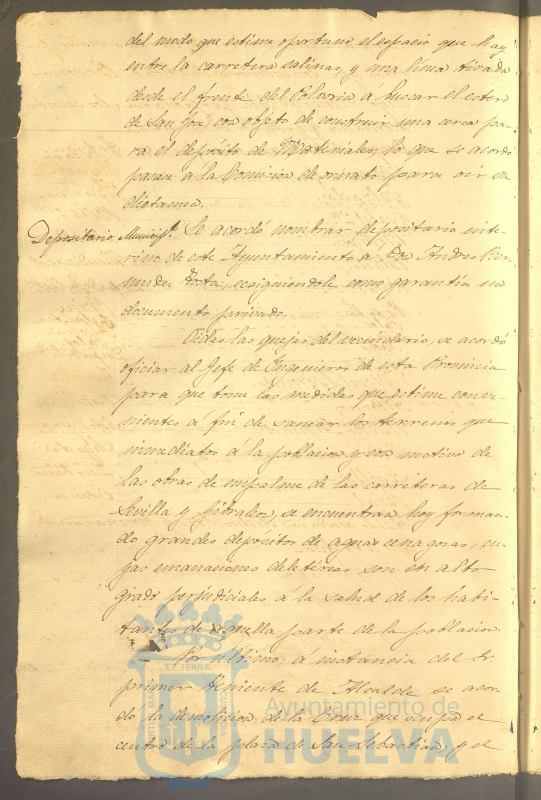 del modo que estime oportuno el espacio que hay
entre la carretera salinas, y una linea tirada
desde el frente del Polvorin á buscar el estero
de San José, con objeto de construir una cerca pa-
ra el deposito de Materiales, lo que se acordó
pasar á la Comision de ornato para oir su
dictamen.
Depositario Municipl. Se acordó nombrar depositario inte-
rino de este Ayuntamiento á Don Andres
como garantía un
documento privado.
Oidas las quejas del vecindario, se acordó
oficiar al Jefe de Ingenieros de esta Provincia
para que tome las medidas que estime conve-
nientes á fin de sanear los terrenos que
inmediatos á la poblacion y con motivo de
las obras de empalme de las carreteras de
Sevilla y Gibraleon, se encuentran hoy forman-
do grandes depositos de aguas cenagosas, cu-
yas emanaciones deletereas son en alto
grado perjudiciales a la salud de los habi-
tantes de aquella parte de la poblacion.
Por último; á instancia del Sr.
primer Teniente de Alcalde se acor-
dó la demolicion de la Cruz que ocupa el
centro de la plaza de San Sebastian, y el
Ayuntamiento de
HUELVA